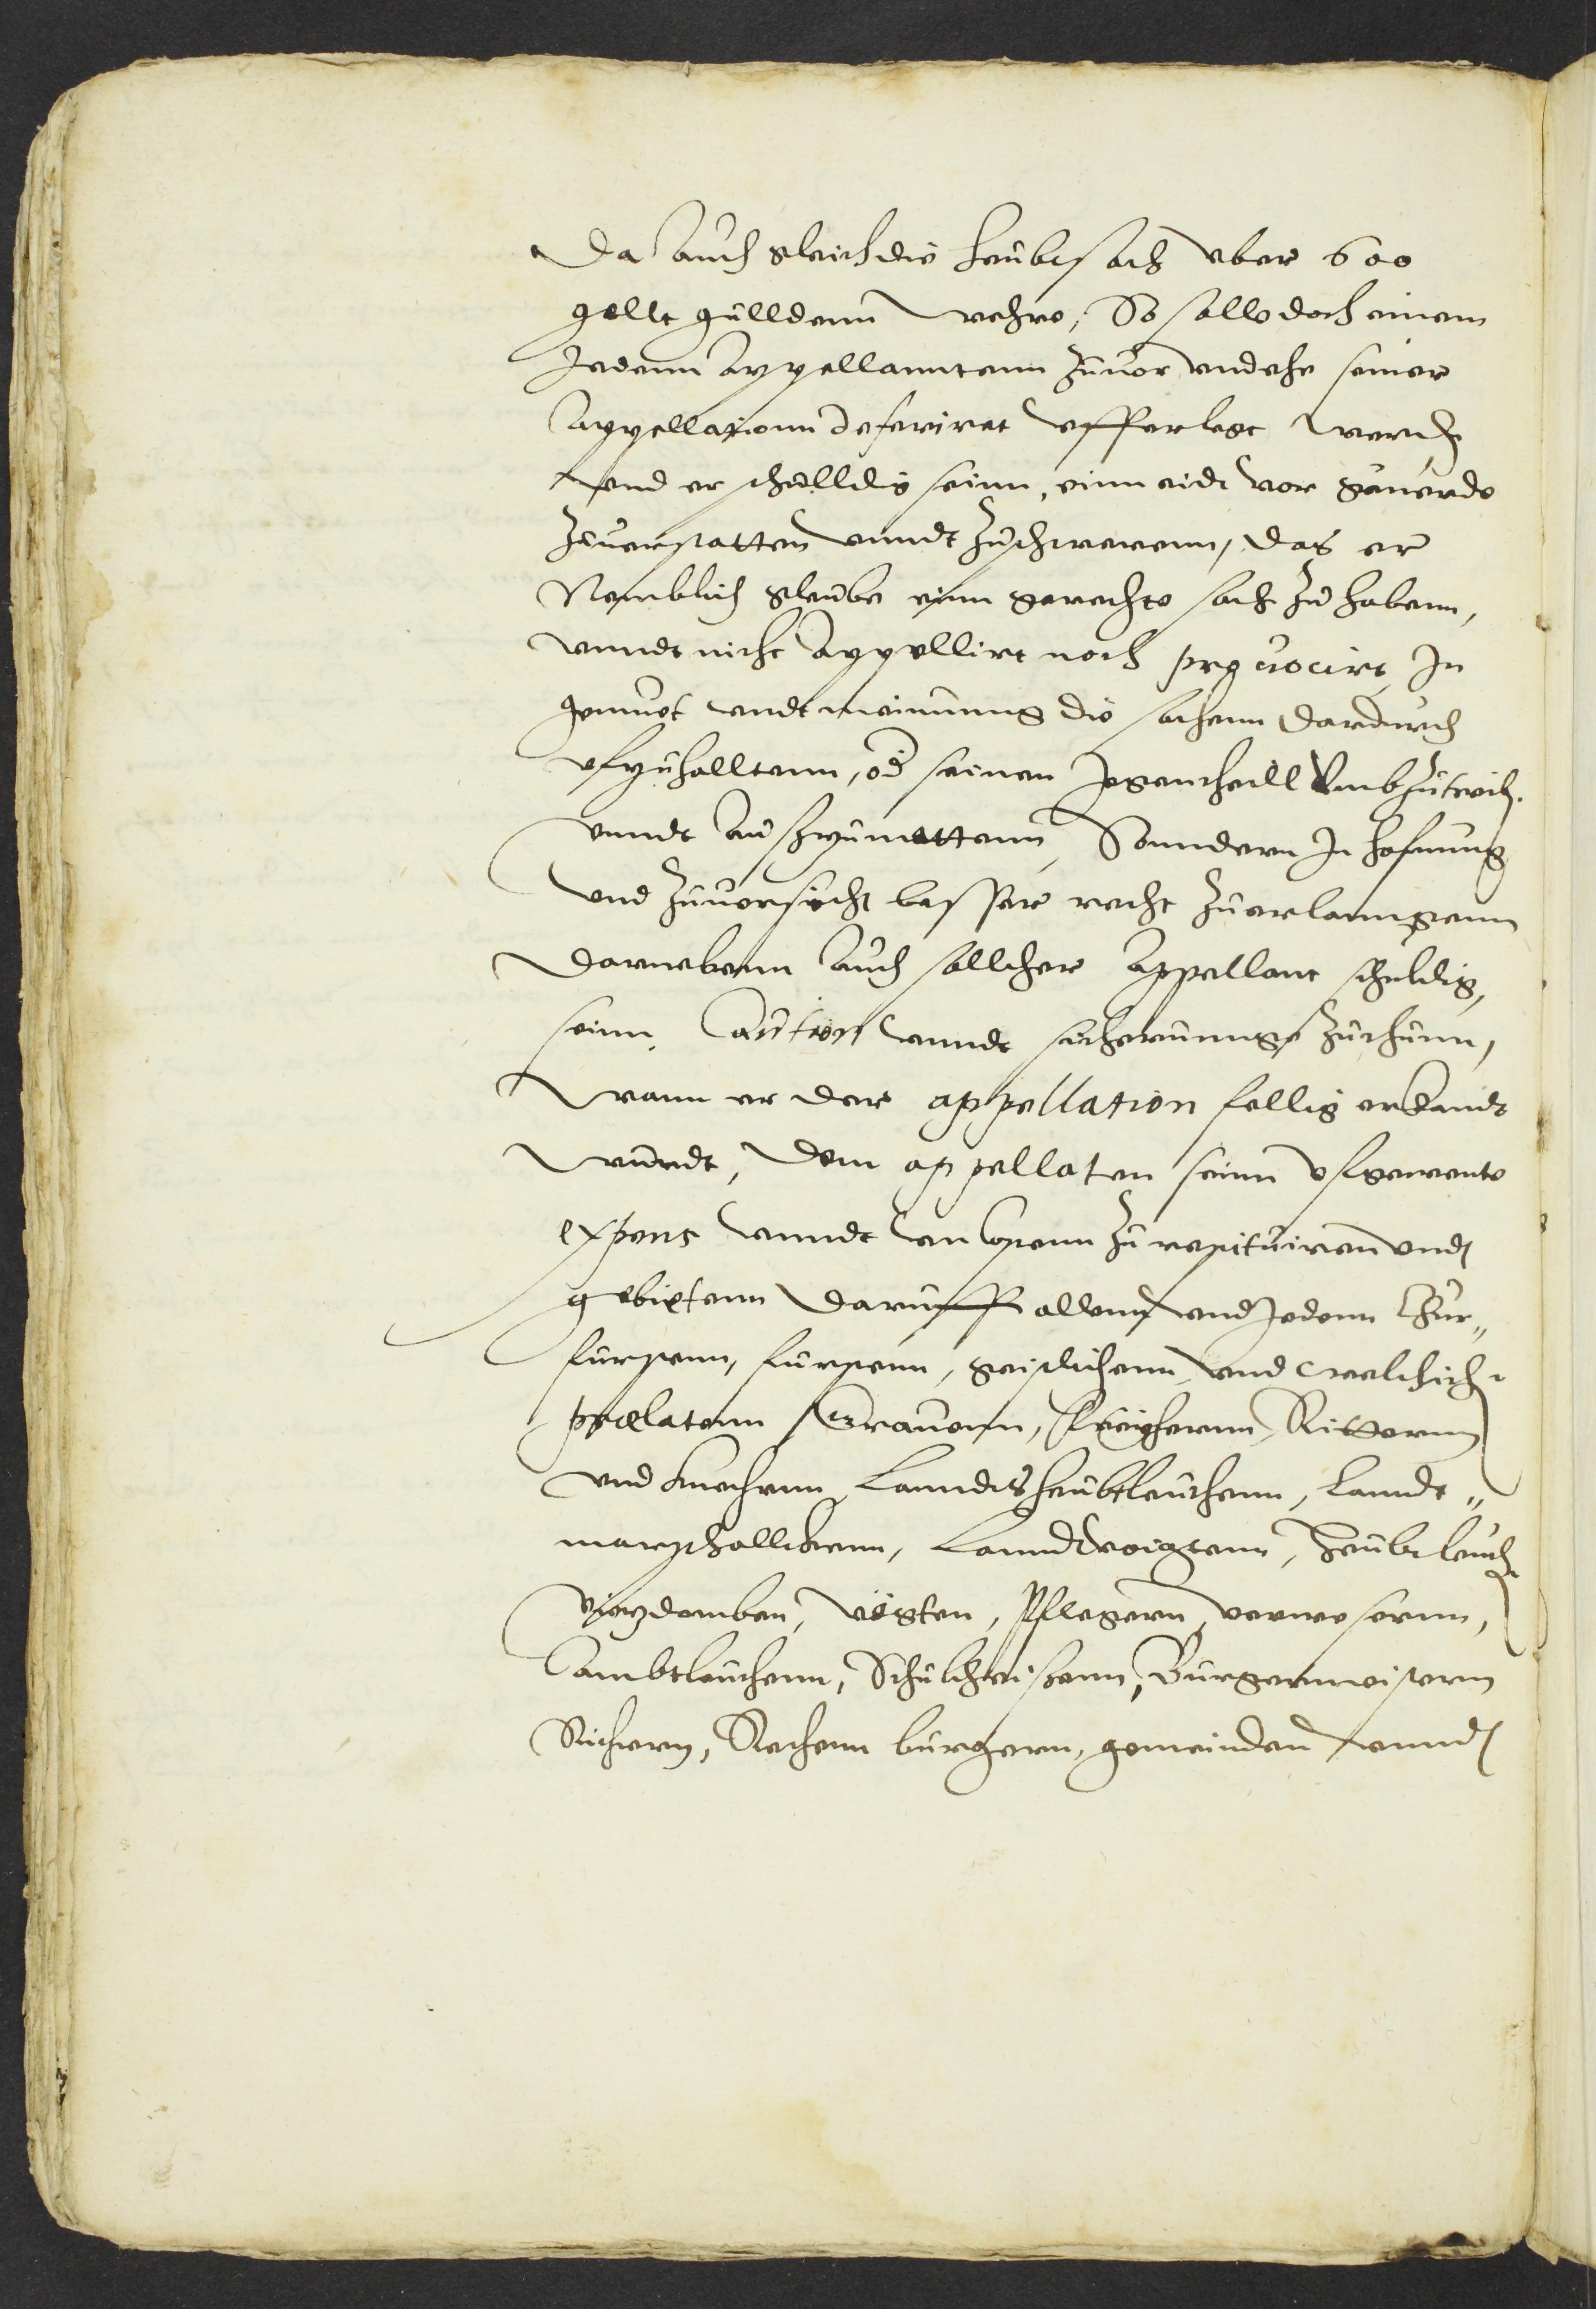 Da Auch gleich die heubtsach vber 600
gollt gulldenn wehre, So solle doch einem
Jedenn Appellanntenn zuuor vnd ehe seiner
Appellationn deferiret vfferlegt werdē
vnd er schulldig seinn, einn eidt vor geuerde
zuuerstatten vnndt zuschwerenn, das er
Nemblich gleube einn gerechte sach zu habenn,
vnndt nicht Appellirt noch prouocirt, In
gemuet vndt meinunng die sachenn dardurch
vfzuhalltenn, od seinen Jegentheill Vmbzutreibē
vnndt Außzumattenn, Sonndern In hofnung
vnd zuuorsicht besser recht zuerlanngenn
Darnebenn Auch sollcher Appellant schuldig,
seinn, Caution vnndt sicherunnge zuthunn,
wann er der appellation fellig erkandt
wurdt, dem appellaten seinn vfgewente
expens vnndt vnkostenn zu restituiren vndt
gebietenn daruff allenn vnd Jedenn Chur„
furstenn, furstenn, geistlichenn vnd weltlichē
prælatenn Grauenn, Freyhernn, Rittern
vnd knechtenn, Lanndesheubtleuthenn, Lanndt„
marschallckenn, Lanndtvoigtenn, heubtleuthē
vizdomben, vögten, Pflegern, verwesernn,
Ambtleuthenn, Schultheissenn, Burgermeistern
Richtern, Rethenn burgern, gemeinden vnndt